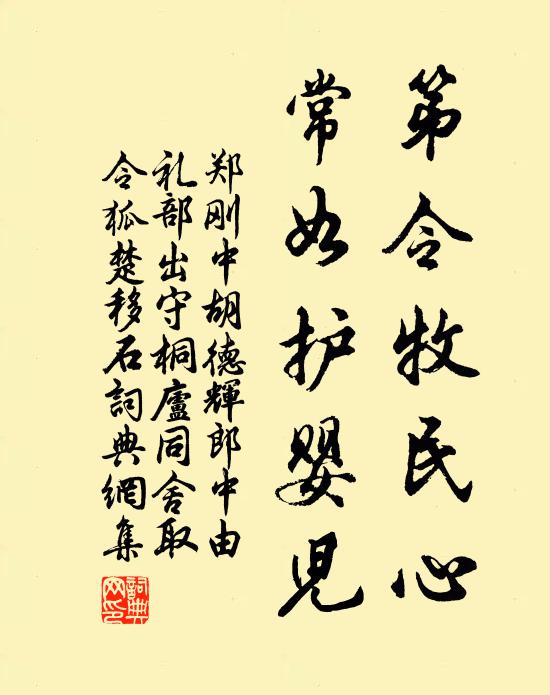 第令牧民心
常如护婴児
郑刚中胡德輝郎中由
礼部出守桐廬同舍取
令狐楚移石詞典網集
詞典